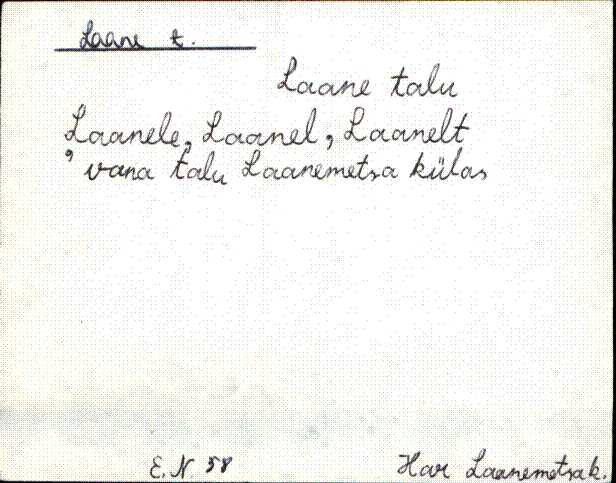 Laane t.
Laane talu
Laanele, Laanel, Laanelt
' vana talu Laanemetsa külas
E. N. 58
Har Laanemetsa k.